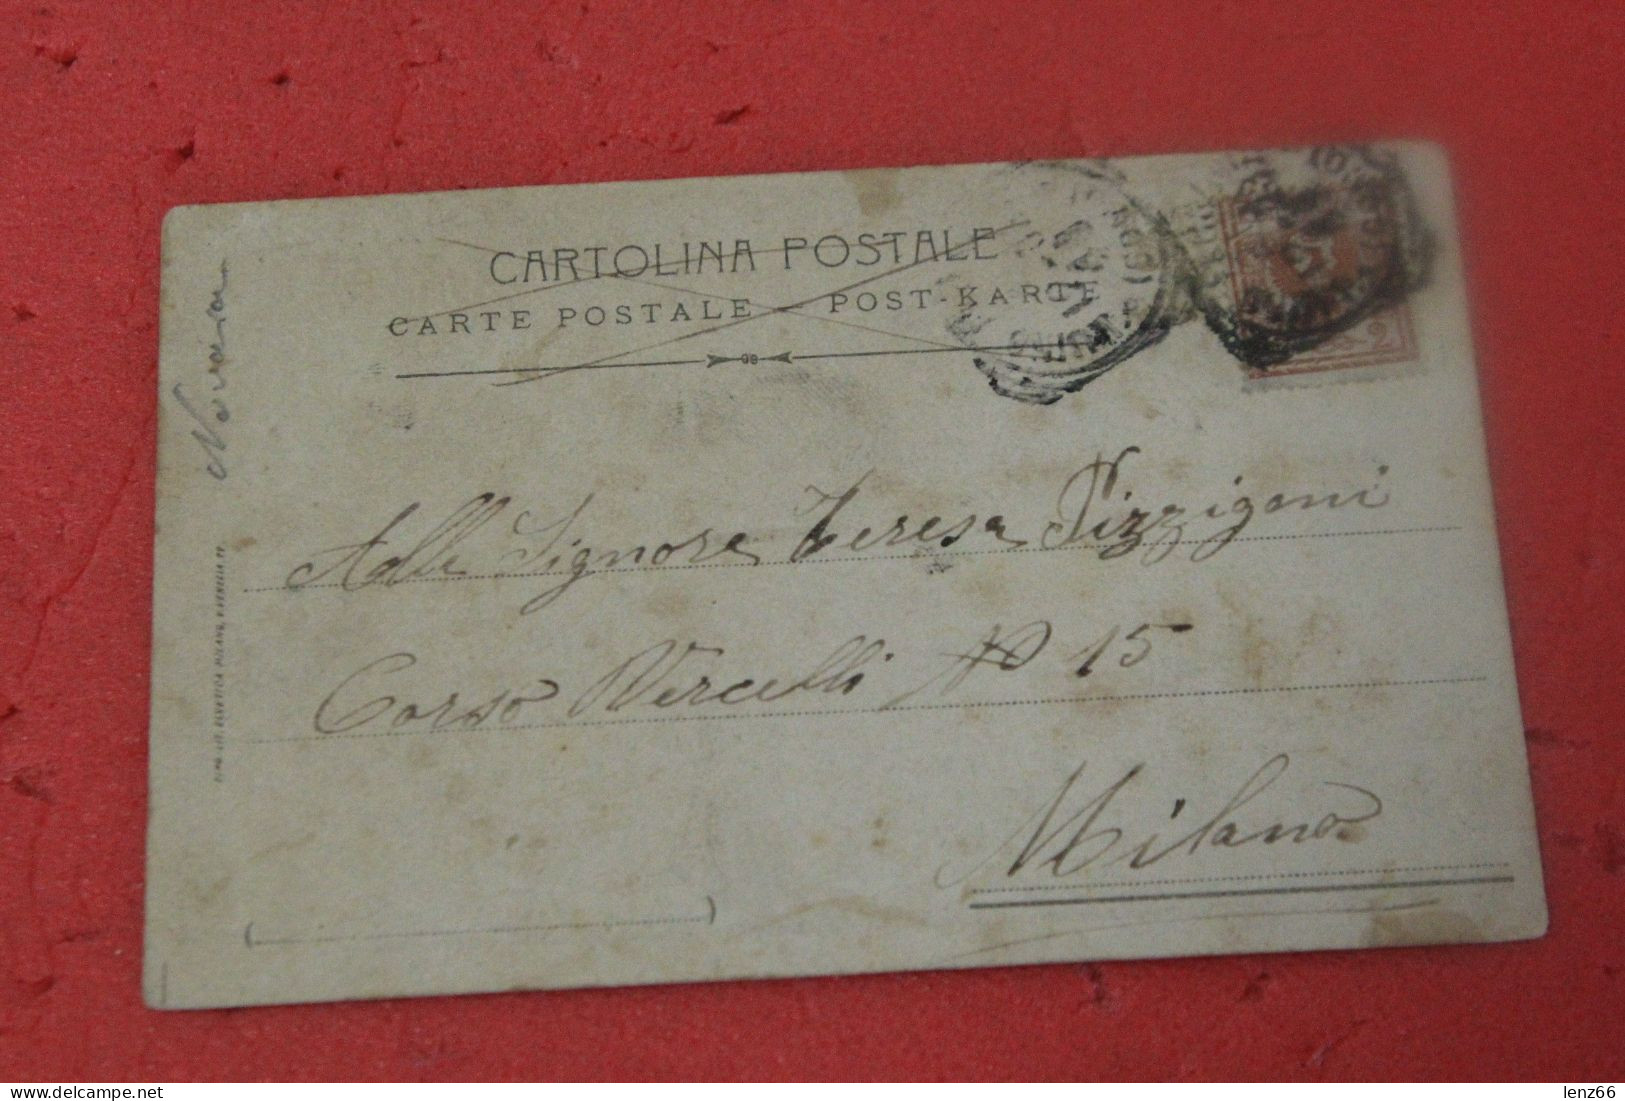 CARTOLINA POSTALE
CARTE POSTALE - POST-KARTE
98
Novara
Alla Signora Teresa Pizzigoni
Corso Vercelli No 15
Milano
lenz66